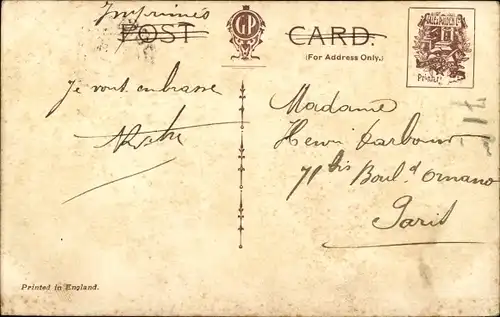 Imprimés
POST CARD.
(For Address Only.)
Je vous embrasse
Madame
Henri
71 bis Boul. d Ornano
Paris
Printed in England.